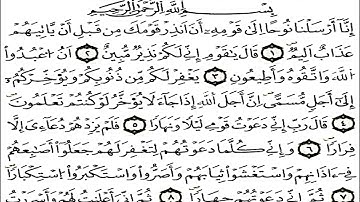 بِسْمِ ٱللَّهِ ٱلرَّحْمَٰنِ ٱلرَّحِيمِ
إِنَّآ أَرْسَلْنَا نُوحًا إِلَىٰ قَوْمِهِۦٓ أَنْ أَنذِرْ قَوْمَكَ مِن قَبْلِ أَن يَأْتِيَهُمْ
عَذَابٌ أَلِيمٌ ١ قَالَ يَٰقَوْمِ إِنِّى لَكُمْ نَذِيرٌ مُّبِينٌ ٢ أَنِ ٱعْبُدُوا۟
ٱللَّهَ وَٱتَّقُوهُ وَأَطِيعُونِ ٣ يَغْفِرْ لَكُم مِّن ذُنُوبِكُمْ وَيُؤَخِّرْكُمْ
إِلَىٰٓ أَجَلٍ مُّسَمًّى إِنَّ أَجَلَ ٱللَّهِ إِذَا جَآءَ لَا يُؤَخَّرُ لَوْ كُنتُمْ تَعْلَمُونَ
٤ قَالَ رَبِّ إِنِّى دَعَوْتُ قَوْمِى لَيْلًا وَنَهَارًا ٥ فَلَمْ يَزِدْهُمْ دُعَآءِىٓ إِلَّا
فِرَارًا ٦ وَإِنِّى كُلَّمَا دَعَوْتُهُمْ لِتَغْفِرَ لَهُمْ جَعَلُوٓا۟ أَصَٰبِعَهُمْ
فِىٓ ءَاذَانِهِمْ وَٱسْتَغْشَوْا۟ ثِيَابَهُمْ وَأَصَرُّوا۟ وَٱسْتَكْبَرُوا۟ ٱسْتِكْبَارًا
٧ ثُمَّ إِنِّى دَعَوْتُهُمْ جِهَارًا ٨ ثُمَّ إِنِّىٓ أَعْلَنتُ لَهُمْ وَأَسْرَرْتُ